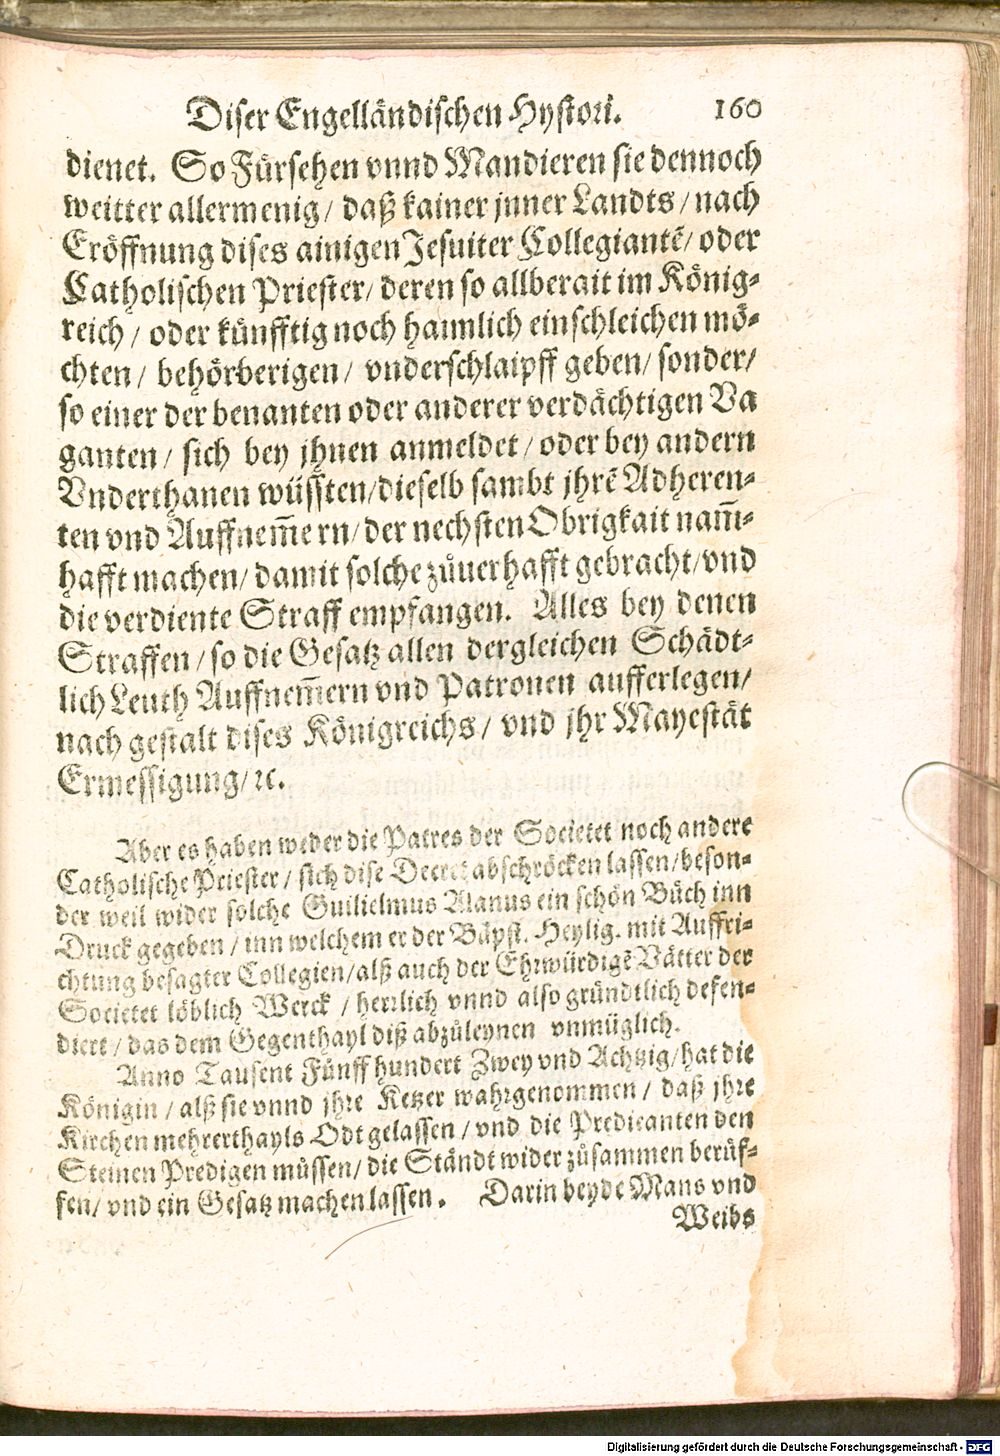 Diser Engelländischen Hystori. 160
dienet. So Fürsehen vnnd Mandieren sie dennoch
weitter allermenig / daß kainer jnner Landts / nach
Eröffnung dises ainigen Jesuiter Collegiantē / oder
Catholischen Priester / deren so allberait im König-
reich / oder künfftig noch haimlich einschleichen mö-
chten / behörberigen / vnderschlaipff geben / sonder /
so einer der benanten oder anderer verdächtigen Va
ganten / sich bey jhnen anmeldet / oder bey andern
Vnderthanen wüßten / dieselb sambt jhrē Adheren-
ten vnd Auffnem̄ern / der nechsten Obrigkait nam̄-
hafft machen / damit solche zůuerhafft gebracht / vnd
die verdiente Straff empfangen. Alles bey denen
Straffen / so die Gesatz allen dergleichen Schädt-
lich Leuth Auffnem̄ern vnd Patronen aufferlegen /
nach gestalt dises Königreichs / vnd jhr Mayestät
Ermessigung / ꝛc.
Aber es haben weder die Patres der Societet noch andere
Catholische Priester / sich dise Decret abschröcken lassen / beson-
der weil wider solche Guilielmus Alanus ein schön Büch inn
Druck gegeben / inn welchem er der Bäpst. Heylig. mit Auffri-
chtung besagter Collegien / alß auch der Ehrwürdigē Vätter der
Societet löblich Werck / herrlich vnnd also gründtlich defen-
diert / das dem Gegenthayl diß abzůleynen vnmüglich.
Anno Tausent Fünff hundert Zwey vnd Achtzig / hat die
Königin / alß sie vnnd jhre Ketzer wahrgenommen / daß jhre
Kirchen mehrerthayls Odt gelassen / vnd die Predicanten den
Steinen Predigen müssen / die Ständt wider zůsammen berüf-
fen / vnd ein Gesatz machen lassen. Darin beyde Mans vnd
Weibs
Digitalisierung gefördert durch die Deutsche Forschungsgemeinschaft - DFG